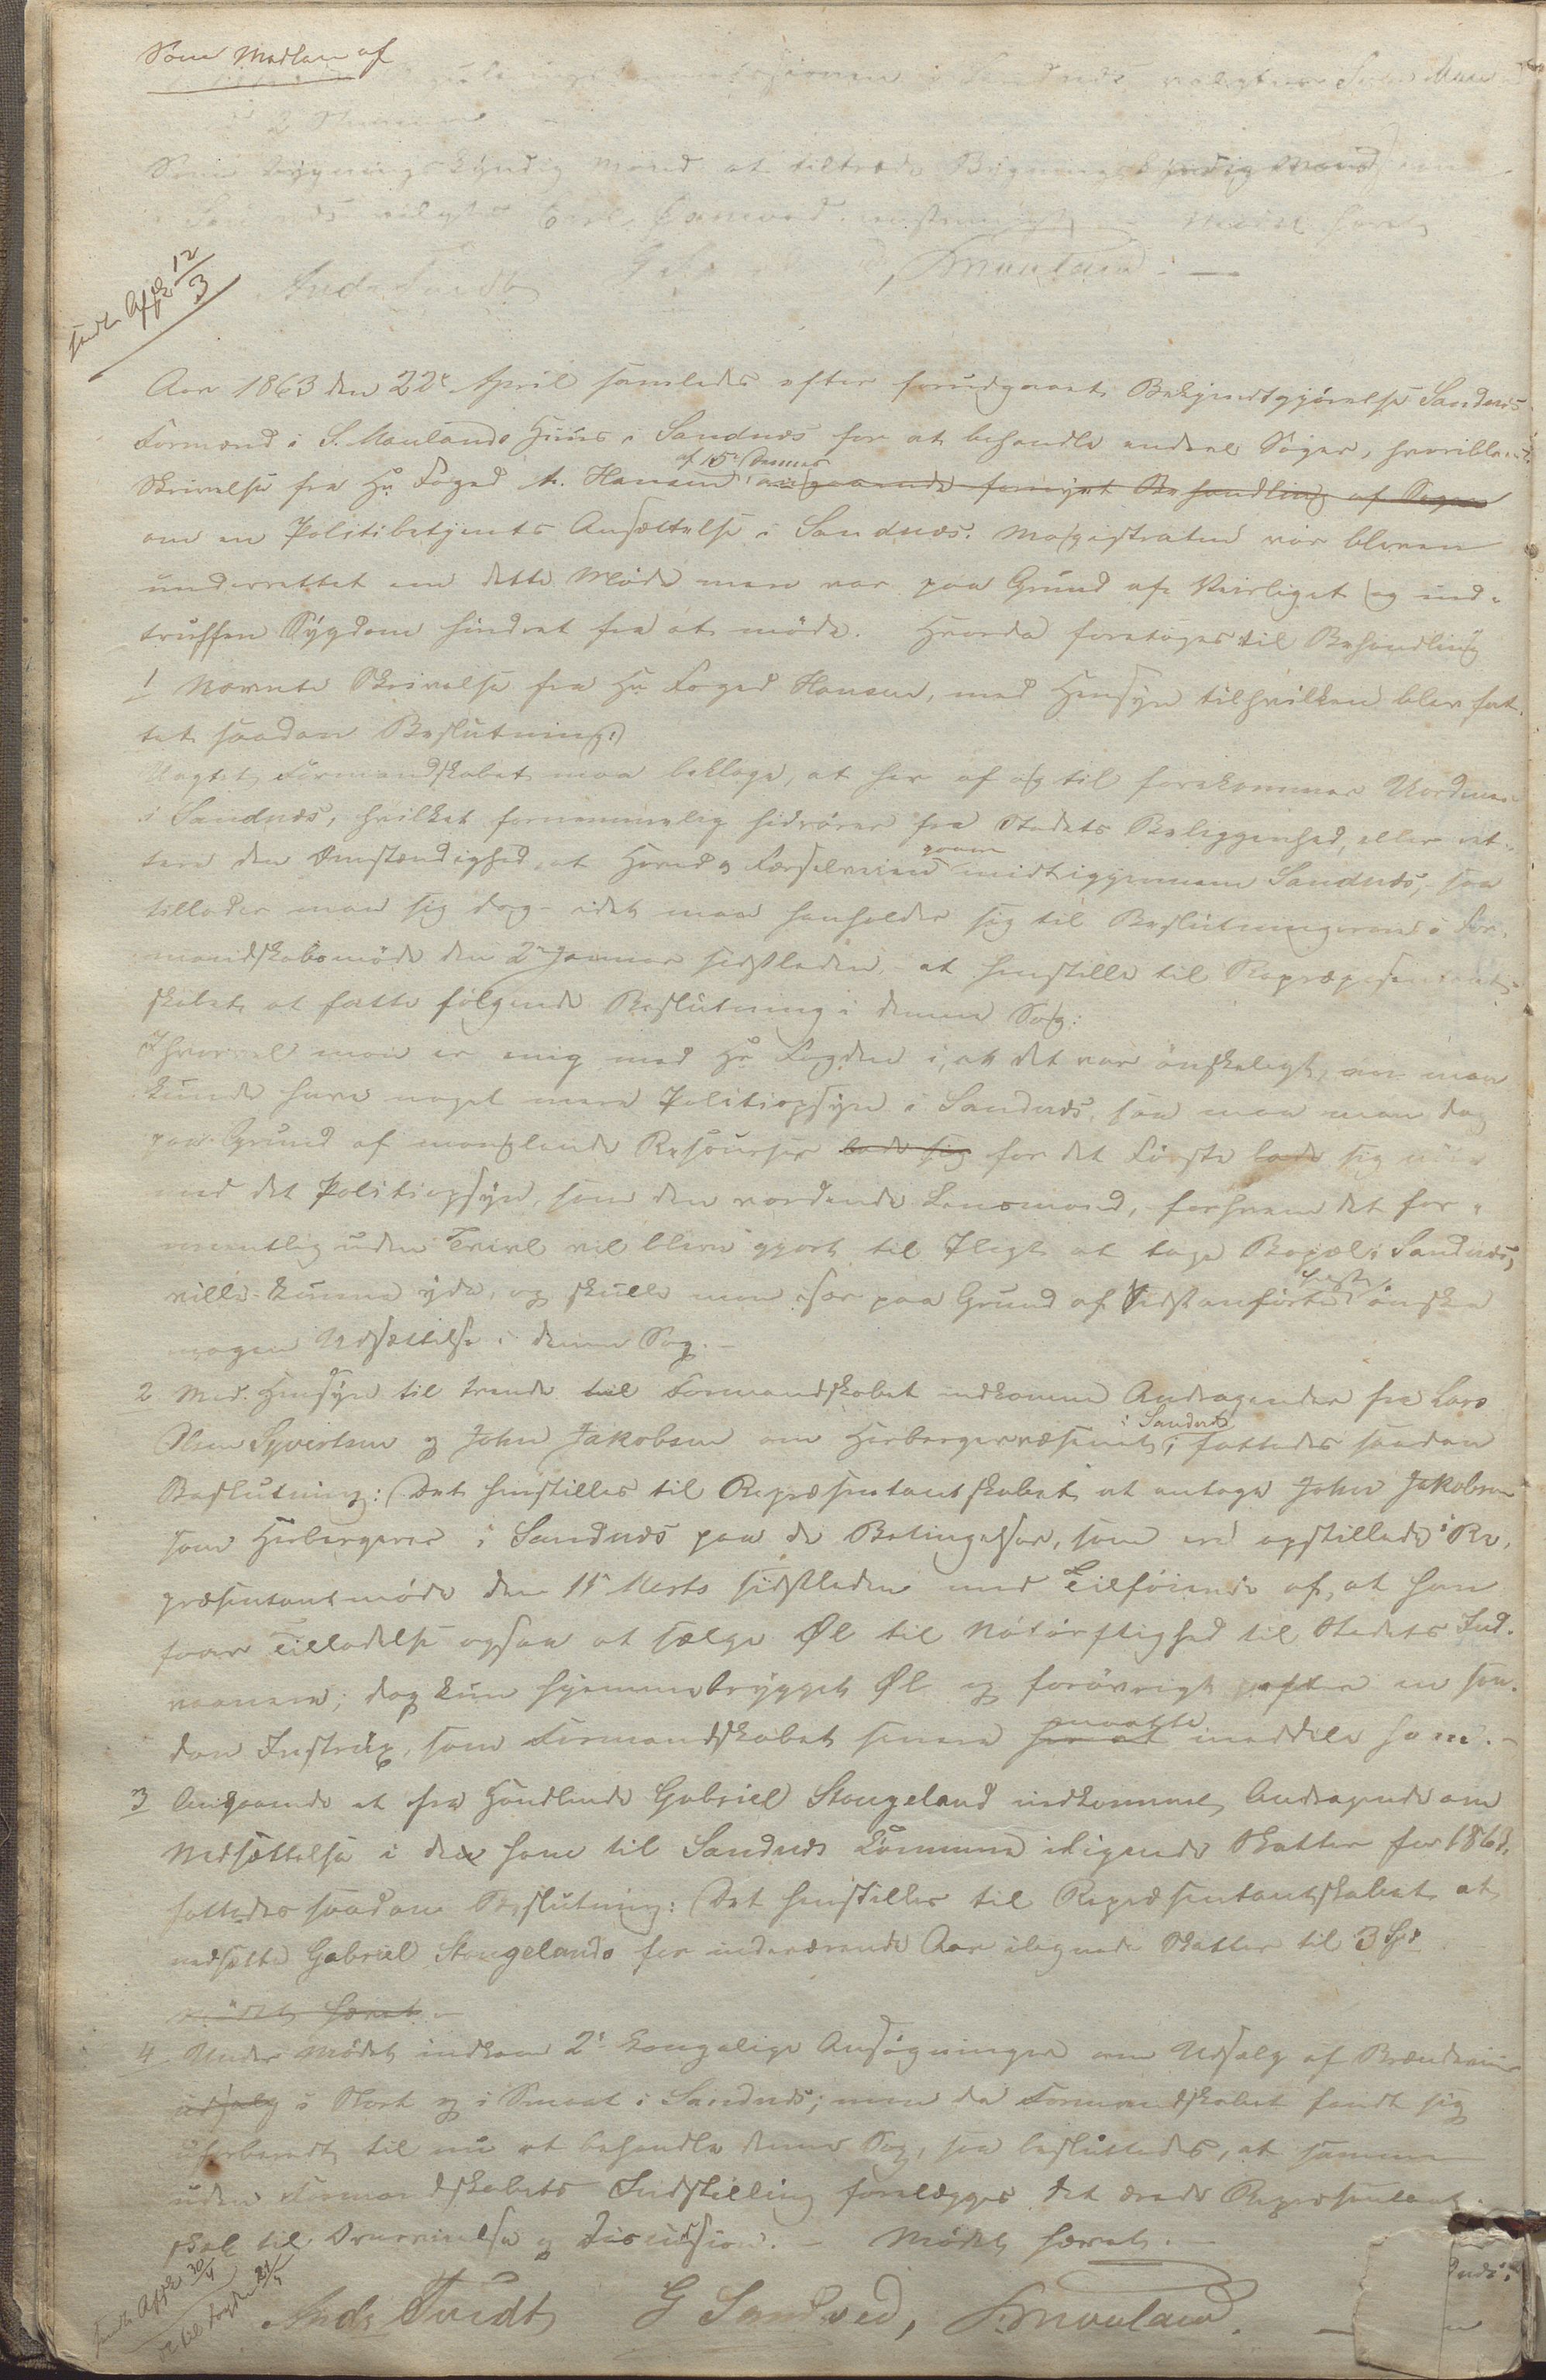 Som Medlem af
i Sandnæs valgtes
2 Stemmer
Som bygningskyndig Mand at tiltræde Bygnings
Sandnæs valgtes Mødet hævet
Smauland.
Sendt Afskr 12/3
Aar 1863 den 22de April samledes efter forudgaaet Bekjendtgjørelse Sandnæs
Formænd i S. Maulands Huus i Sandnæs for at behandle endeel Sager, hvoriblandt
Skrivelse fra Hr Foged A. Hansen af 15de Dennes angaaende fornyet Behandling af Sagen
om en Politibetjents Ansættelse i Sandnæs. Magistraten var bleven
underrettet om dette Møde men var paa Grund af Veirliget og ind-
truffen Sygdom hindret fra at møde. Hvorda foretoges til Behandling
1 Nævnte Skrivelse fra Hr Foged Hansen, med Hensyn til hvilken blev fat-
tet saadan Beslutning:
Uagtet Formandskabet maa beklage, at her af og til forekommer Uordener
i Sandnæs, hvilket fornemmelig hidrører fra Stedets Beliggenhed, eller ret-
tere den Omstændighed, at Hovedfærselsveien gaaer midt igjennem Sandnæs, saa
tillader man sig dog – idet man henholder sig til Beslutningerne i For-
mandskabsmøde den 2den Januar sidstleden – at henstille til Repræsentant-
skabet at fatte følgende Beslutning i denne Sag:
Ihvorvel man er enig med Hr Fogden i, at det var ønskeligt, om man
kunde have noget mere Politiopsyn i Sandnæs, saa maa man dog
paa Grund af manglende Resourser lade sig for det Første lade sig nøie
med det Politiopsyn, som den vordende Lensmand, forhvem det for-
mentlig uden Tvivl vil blive gjort til Pligt at tage Bopæl i Sandnæs,
ville kunne yde, og skulle man især paa Grund af Sidstanførte ønske
nogen Udsættelse i denne Sag. –
2 Med Hensyn til trende til Formandskabet indkomne Andragender fra Lars
Olsen Syvertsen og John Jakobsen om Herbergerevæsenet i Sandnæs, fattedes saadan
Beslutning: Det henstilles til Repræsentantskabet at antage John Jakobsen
som Herbergerer i Sandnæs paa de Betingelser, som ere opstillede i Re-
præsentantmøde den 11te Marts sidstleden med Tilføiende af, at han
faar Tilladelse ogsaa at sælge Øl til Nødtørftighed til Stedets Ind-
vaanere; dog kun hjemmebrygget Øl og forøvrigt efter en saa-
dan Instrux, som Formandskabet senere maatte meddele ham. –
3 Angaaende et fra Handlende Gabriel Stangeland indkommet Andragende om
Nedsættelse i de ham til Sandnæs Kommune ilignede Skatter for 1863,
fattedes saadan Beslutning: Det henstilles til Repræsentantskabet at
nedsætte Gabriel Stangelands for indeværende Aar ilignede Skatter til 3 Spd
Mødet hævet. –
4 Under Mødet indkom 2de Kongelige Ansøgninger om Udsalg af Brændeviin
udsalg i Stort og i Smaat i Sandnæs; men da Formandskabet fandt sig
uforberedt til nu at behandle denne Sag, saa besluttedes, at samme
uden Formandskabets Indstilling forelægges det ærede Repræsentant-
skab til Overveielse og Discussion. – Mødet hævet. –
Ands Tvedt G Sandved, Smauland.
Sendt Afskr 30/4